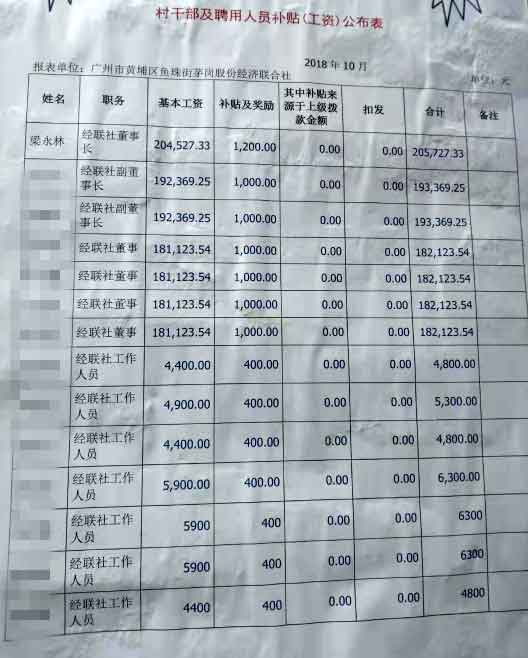 村干部及聘用人员补贴(工资)公布表
2018 年 10 月
报表单位：广州市黄埔区鱼珠街茅岗股份经济联合社 单位：元
姓名 职务 基本工资 补贴及奖励 其中补贴来源于上级拨款金额 扣发 合计 备注
梁永林 经联社董事长 204,527.33 1,200.00 0.00 0.00 205,727.33
经联社副董事长 192,369.25 1,000.00 0.00 0.00 193,369.25
经联社副董事长 192,369.25 1,000.00 0.00 0.00 193,369.25
经联社董事 181,123.54 1,000.00 0.00 0.00 182,123.54
经联社董事 181,123.54 1,000.00 0.00 0.00 182,123.54
经联社董事 181,123.54 1,000.00 0.00 0.00 182,123.54
经联社董事 181,123.54 1,000.00 0.00 0.00 182,123.54
经联社工作人员 4,400.00 400.00 0.00 0.00 4,800.00
经联社工作人员 4,900.00 400.00 0.00 0.00 5,300.00
经联社工作人员 4,400.00 400.00 0.00 0.00 4,800.00
经联社工作人员 5,900.00 400.00 0.00 0.00 6,300.00
经联社工作人员 5900 400 0.00 0.00 6300
经联社工作人员 5900 400 0.00 0.00 6300
经联社工作人员 4400 400 0.00 0.00 4800